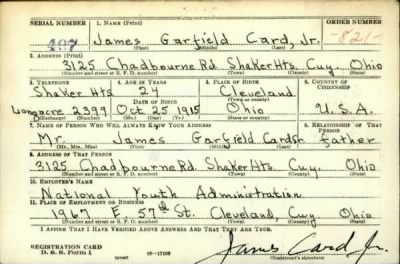 SERIAL NUMBER 1. NAME (Print) ORDER NUMBER
James Garfield Card, Jr. -821-
(First) (Middle) (Last)
2. ADDRESS (Print)
3125 Chadbourne Rd. Shaker Hts. Cuy. Ohio
(Number and street or R. F. D. number) (Town) (County) (State)
3. TELEPHONE 4. AGE IN YEARS 5. PLACE OF BIRTH 6. COUNTRY OF CITIZENSHIP
Shaker Hts 24 Cleveland
DATE OF BIRTH (Town or county)
Longacre 2399 Oct 25 1915 Ohio U.S.A.
(Exchange) (Number) (Mo.) (Day) (Yr.) (State or country)
7. NAME OF PERSON WHO WILL ALWAYS KNOW YOUR ADDRESS 8. RELATIONSHIP OF THAT PERSON
Mr. James Garfield Card Sr. father
(Mr., Mrs., Miss) (First) (Middle) (Last)
9. ADDRESS OF THAT PERSON
3125 Chadbourne Rd. Shaker Hts. Cuy. Ohio
(Number and street or R. F. D. number) (Town) (County) (State)
10. EMPLOYER'S NAME
National Youth Administration
11. PLACE OF EMPLOYMENT OR BUSINESS
1967 E. 57th St. Cleveland, Cuy Ohio
(Number and street or R. F. D. number) (Town) (County) (State)
I AFFIRM THAT I HAVE VERIFIED ABOVE ANSWERS AND THAT THEY ARE TRUE.
REGISTRATION CARD James Card Jr.
D. S. S. Form 1 (over) 16-17105 (Registrant's signature)